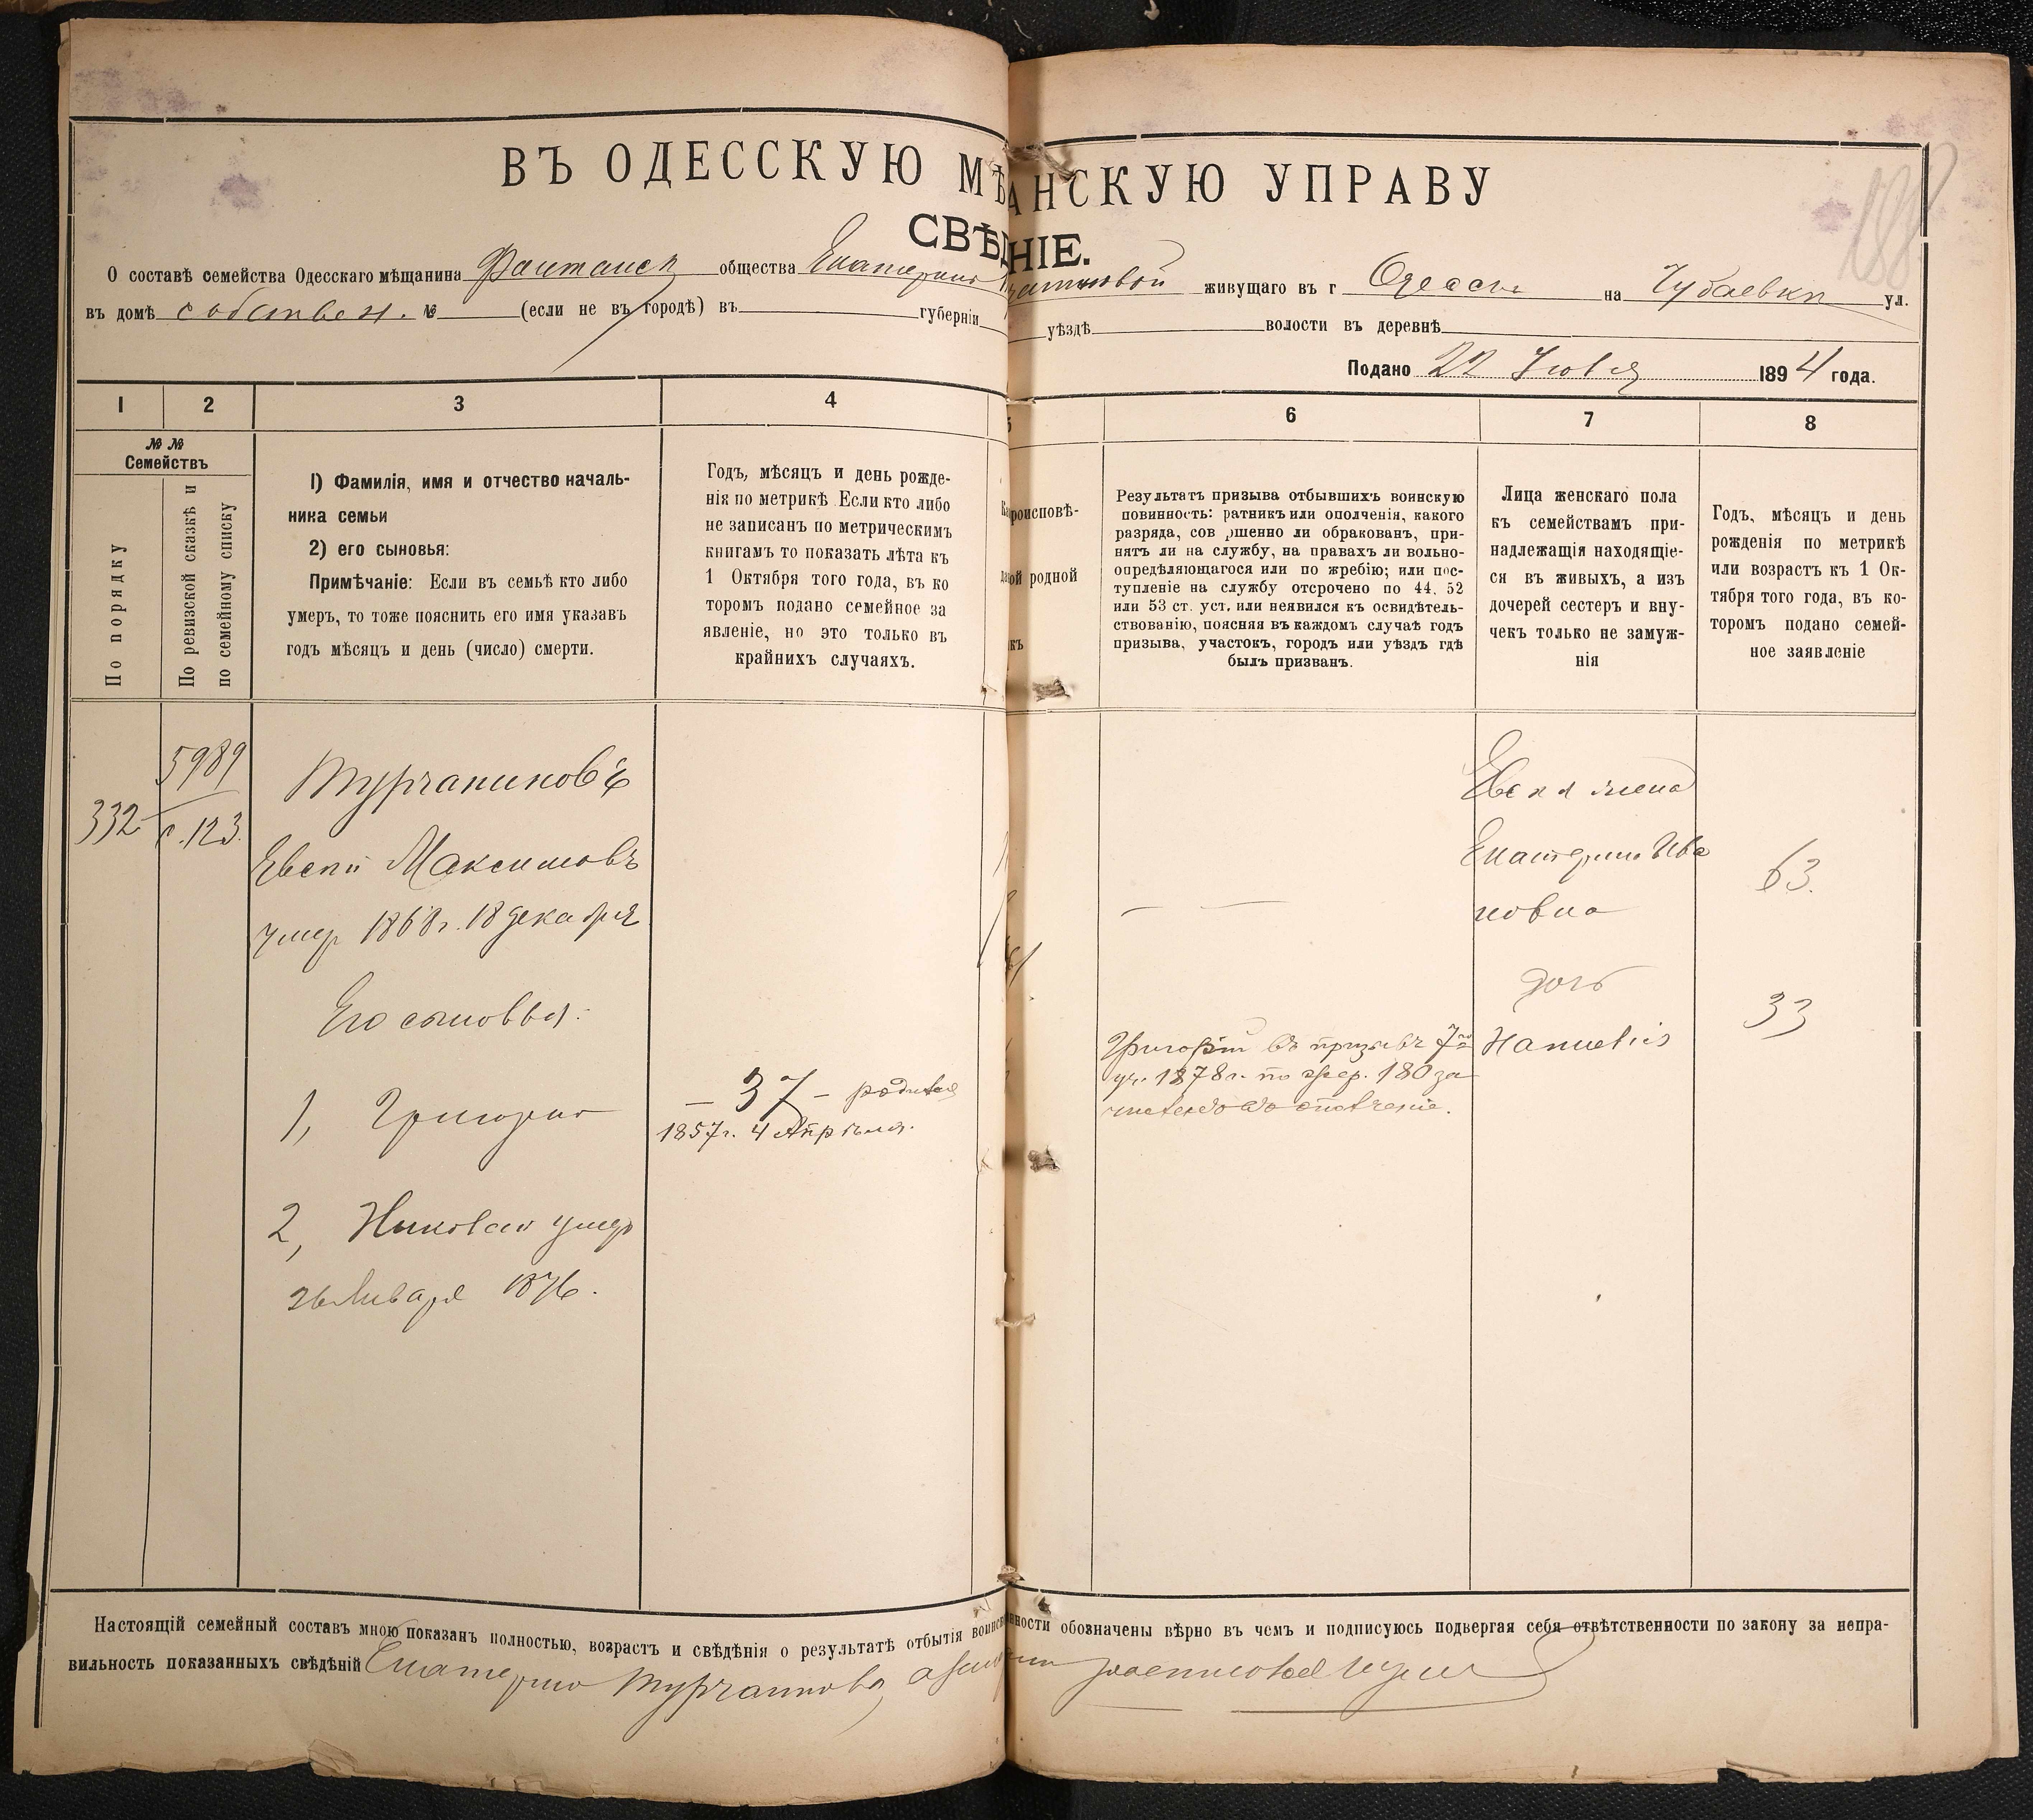 ВЪ ОДЕССКУЮ МѢ АНСКУЮ УПРАВУ
СВѢД НІЕ.
О составѣ семейства Одесскаго мѣщанина Фонтанск общества Екатерины живущаго въ г Одессѣ на Чубаевкѣ ул.
въ домѣ собствен. № (если не въ городѣ) въ губерніи уѣздѣ волости въ деревнѣ
Подано 22 Іюля 1894 года.
1 2 3 4 5 6 7 8
№ №
Семействъ
По порядку
По ревизской сказкѣ и
по семейному списку
1) Фамилія, имя и отчество началь-
ника семьи
2) его сыновья:
Примѣчаніе: Если въ семьѣ кто либо
умеръ, то тоже пояснить его имя указавъ
годъ мѣсяцъ и день (число) смерти.
Годъ, мѣсяцъ и день рожде-
нія по метрикѣ Если кто либо
не записанъ по метрическимъ
книгамъ то показать лѣта къ
1 Октября того года, въ ко
торомъ подано семейное за
явленіе, но это только въ
крайнихъ случаяхъ.
роисповѣ-
ой родной
къ
Результатъ призыва отбывшихъ воинскую
повинность: ратникъ или ополченія, какого
разряда, сов ршенно ли обракованъ, при-
нятъ ли на службу, на правахъ ли вольно-
опредѣляющагося или по жребію; или пос-
тупленіе на службу отсрочено по 44, 52
или 53 ст. уст. или неявился къ освидѣтель-
ствованію, поясняя въ каждомъ случаѣ годъ
призыва, участокъ, городъ или уѣздъ гдѣ
былъ призванъ.
Лица женскаго пола
къ семействамъ при-
надлежащія находящіе-
ся въ живыхъ, а изъ
дочерей сестеръ и вну-
чекъ только не замуж-
нія
Годъ, мѣсяцъ и день
рожденія по метрикѣ
или возрастъ къ 1 Ок-
тября того года, въ ко-
торомъ подано семей-
ное заявленіе
332
5989
с. 123.
Турчаниновъ
Евсей Максимовъ
умер 1868 г. 18 декабря
Его сыновья:
1, Григорий
2, Николай умеръ
26 Января 1876.
— 37 — родился
1857 г. 4 Апрѣля.
— —
Григорій въ призывъ 7го
уч. 1878 г. по жер. 180 за
численъ въ ополченіе.
Евсея жена
Екатерина Ива
новна
дочь
63.
33
Настоящій семейный составъ мною показанъ полностью, возрастъ и свѣдѣнія о результатѣ отбытія воинск нности обозначены вѣрно въ чемъ и подписуюсь подвергая себя отвѣтственности по закону за непра-
вильность показанныхъ свѣдѣній Екатерина Турчанинова,